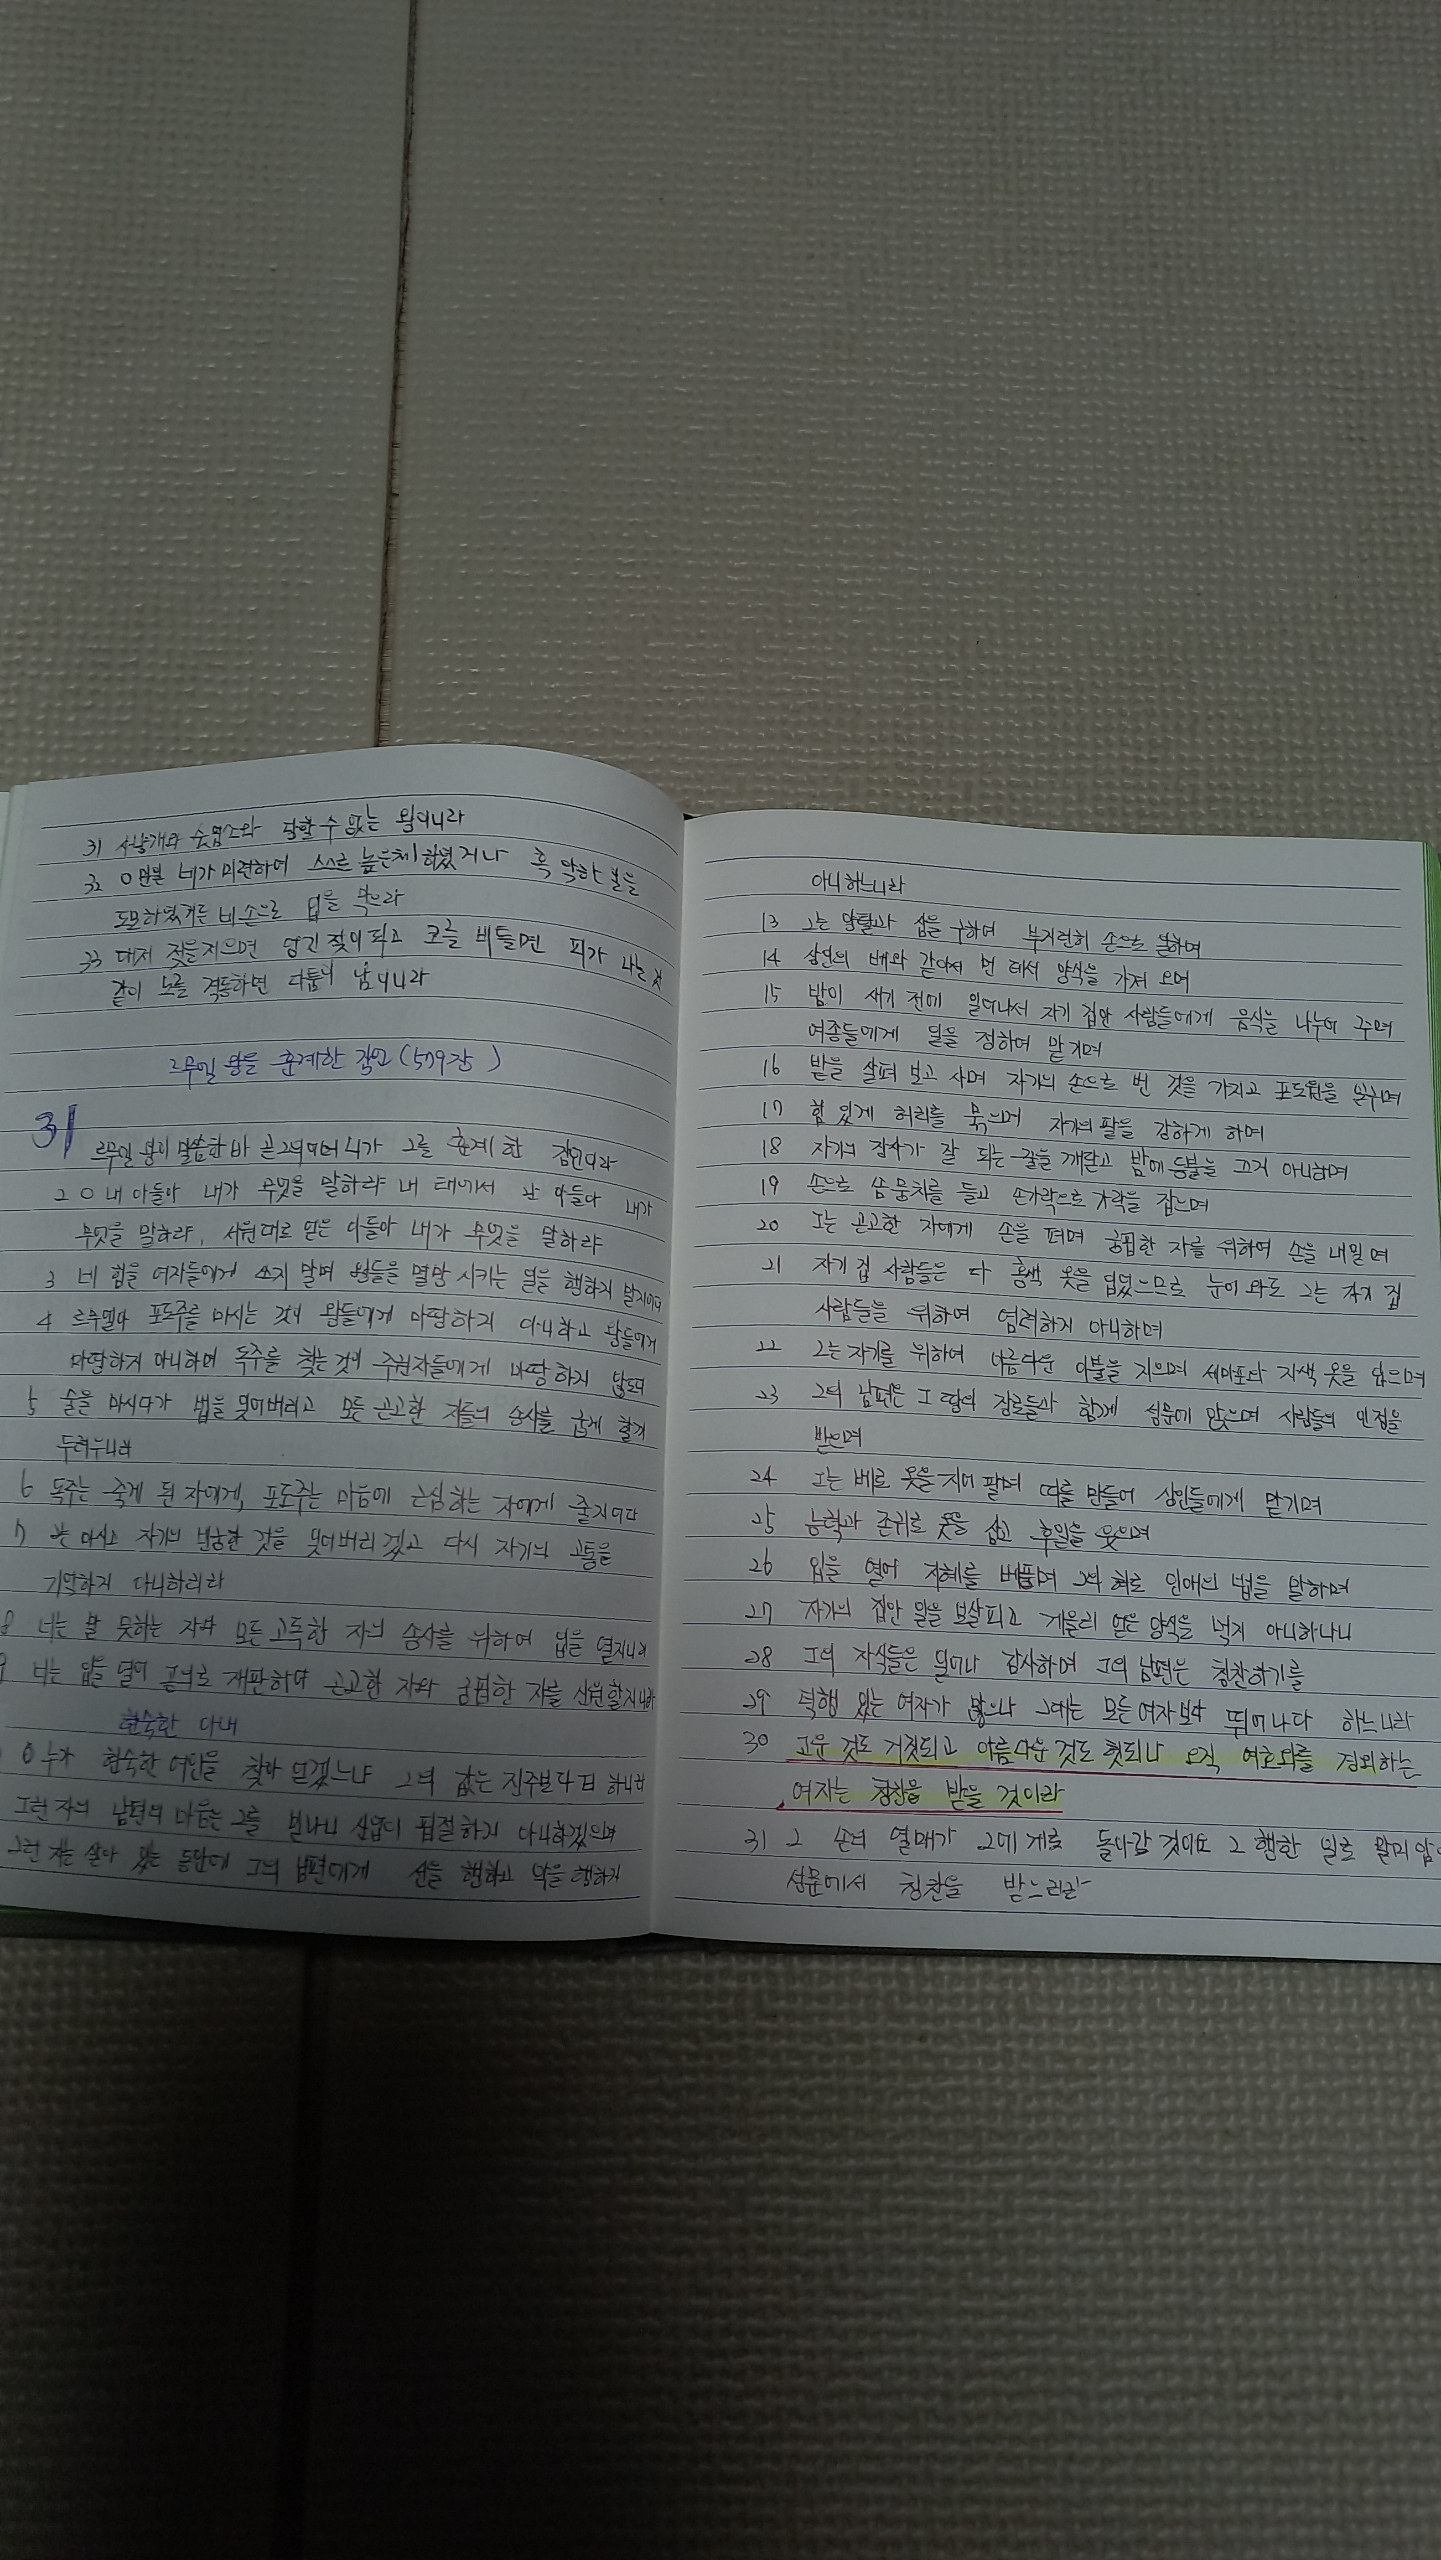 31 사냥개와 숫염소와 당할 수 없는 왕이니라
32 ○ 만일 네가 미련하여 스스로 높은체 하였거나 혹 악한 일을
도모하였거든 네 손으로 입을 막으라
33 대저 젖을 저으면 엉긴 젖이 되고 코를 비틀면 피가 나는 것
같이 노를 격동하면 다툼이 남이니라
르무엘 왕을 훈계한 잠언 (579장)
31
르무엘 왕이 말씀한 바 곧 그의 어머니가 그를 훈계한 잠언이라
2 ○ 내 아들아 내가 무엇을 말하랴 내 태에서 난 아들아 내가
무엇을 말하랴, 서원대로 얻은 아들아 내가 무엇을 말하랴
3 네 힘을 여자들에게 쓰지 말며 왕들을 멸망 시키는 일을 행하지 말지어다
4 르무엘아 포도주를 마시는 것이 왕들에게 마땅하지 아니하고 왕들에게
마땅하지 아니하며 독주를 찾는 것이 주권자들에게 마땅하지 않도다
5 술을 마시다가 법을 잊어버리고 모든 곤고한 자들의 송사를 굽게 할까
두려우니라
6 독주는 죽게 된 자에게, 포도주는 마음에 근심하는 자에게 줄지어다
7 는 마시고 자기의 빈궁한 것을 잊어버리겠고 다시 자기의 고통을
기억하지 아니하리라
8 너는 말 못하는 자와 모든 고독한 자의 송사를 위하여 입을 열지니라
9 너는 입을 열어 공의로 재판하여 곤고한 자와 궁핍한 자를 신원할지니라
현숙한 아내
0 누가 현숙한 여인을 찾아 얻겠느냐 그의 값은 진주보다 더 하니라
그런 자의 남편의 마음은 그를 믿나니 산업이 핍절하지 아니하겠으며
그런 자는 살아 있는 동안에 그의 남편에게 선을 행하고 악을 행하지
아니하느니라
13 그는 양털과 삼을 구하여 부지런히 손으로 일하며
14 상인의 배와 같아서 먼 데서 양식을 가져 오며
15 밤이 새기 전에 일어나서 자기 집안 사람들에게 음식을 나누어 주며
여종들에게 일을 정하여 맡기며
16 밭을 살펴 보고 사며 자기의 손으로 번 것을 가지고 포도원을 일구며
17 힘 있게 허리를 묶으며 자기의 팔을 강하게 하며
18 자기의 장사가 잘 되는 줄을 깨닫고 밤에 등불을 끄지 아니하며
19 손으로 솜 뭉치를 들고 손가락으로 가락을 잡으며
20 그는 곤고한 자에게 손을 펴며 궁핍한 자를 위하여 손을 내밀며
21 자기 집 사람들은 다 홍색 옷을 입었으므로 눈이 와도 그는 자기 집
사람들을 위하여 염려하지 아니하며
22 그는 자기를 위하여 아름다운 이불을 지으며 세마포와 자색 옷을 입으며
23 그의 남편은 그 땅의 장로들과 함께 성문에 앉으며 사람들의 인정을
받으며
24 그는 베로 옷을 지어 팔며 띠를 만들어 상인들에게 맡기며
25 능력과 존귀로 옷을 삼고 후일을 웃으며
26 입을 열어 지혜를 베풀며 그의 혀로 인애의 법을 말하며
27 자기의 집안 일을 보살피고 게을리 얻은 양식을 먹지 아니하나니
28 그의 자식들은 일어나 감사하며 그의 남편은 칭찬하기를
29 덕행 있는 여자가 많으나 그대는 모든 여자보다 뛰어나다 하느니라
30 고운 것도 거짓되고 아름다운 것도 헛되나 오직 여호와를 경외하는
여자는 칭찬을 받을 것이라
31 그 손의 열매가 그에게로 돌아갈 것이요 그 행한 일로 말미암
성문에서 칭찬을 받느니라